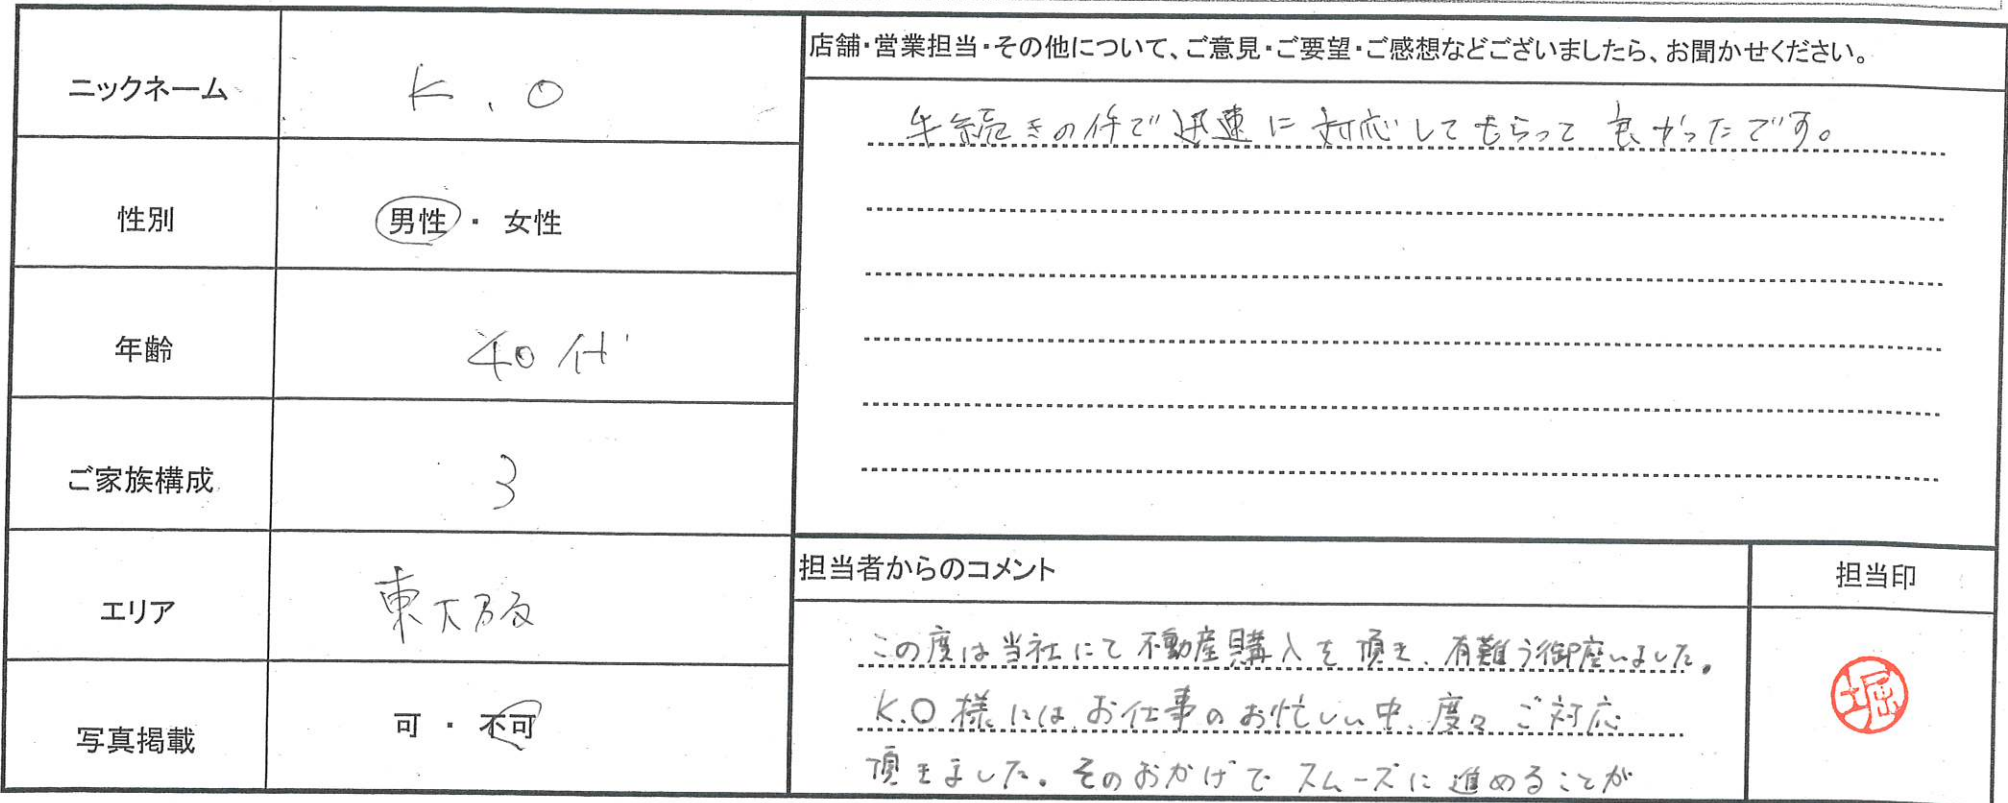 ニックネーム
K.O
性別
男性・女性
年齢
40代
ご家族構成
3
エリア
東大阪
写真掲載
可・不可
店舗・営業担当・その他について、ご意見・ご要望・ご感想などございましたら、お聞かせください。
手続きの件で迅速に対応してもらって良かったです。
担当者からのコメント
この度は当社にて不動産購入を頂き、有難う御座いました。
K.O様には、お仕事のお忙しい中、度々ご対応
頂きました。そのおかげでスムーズに進めることが
担当印
堀